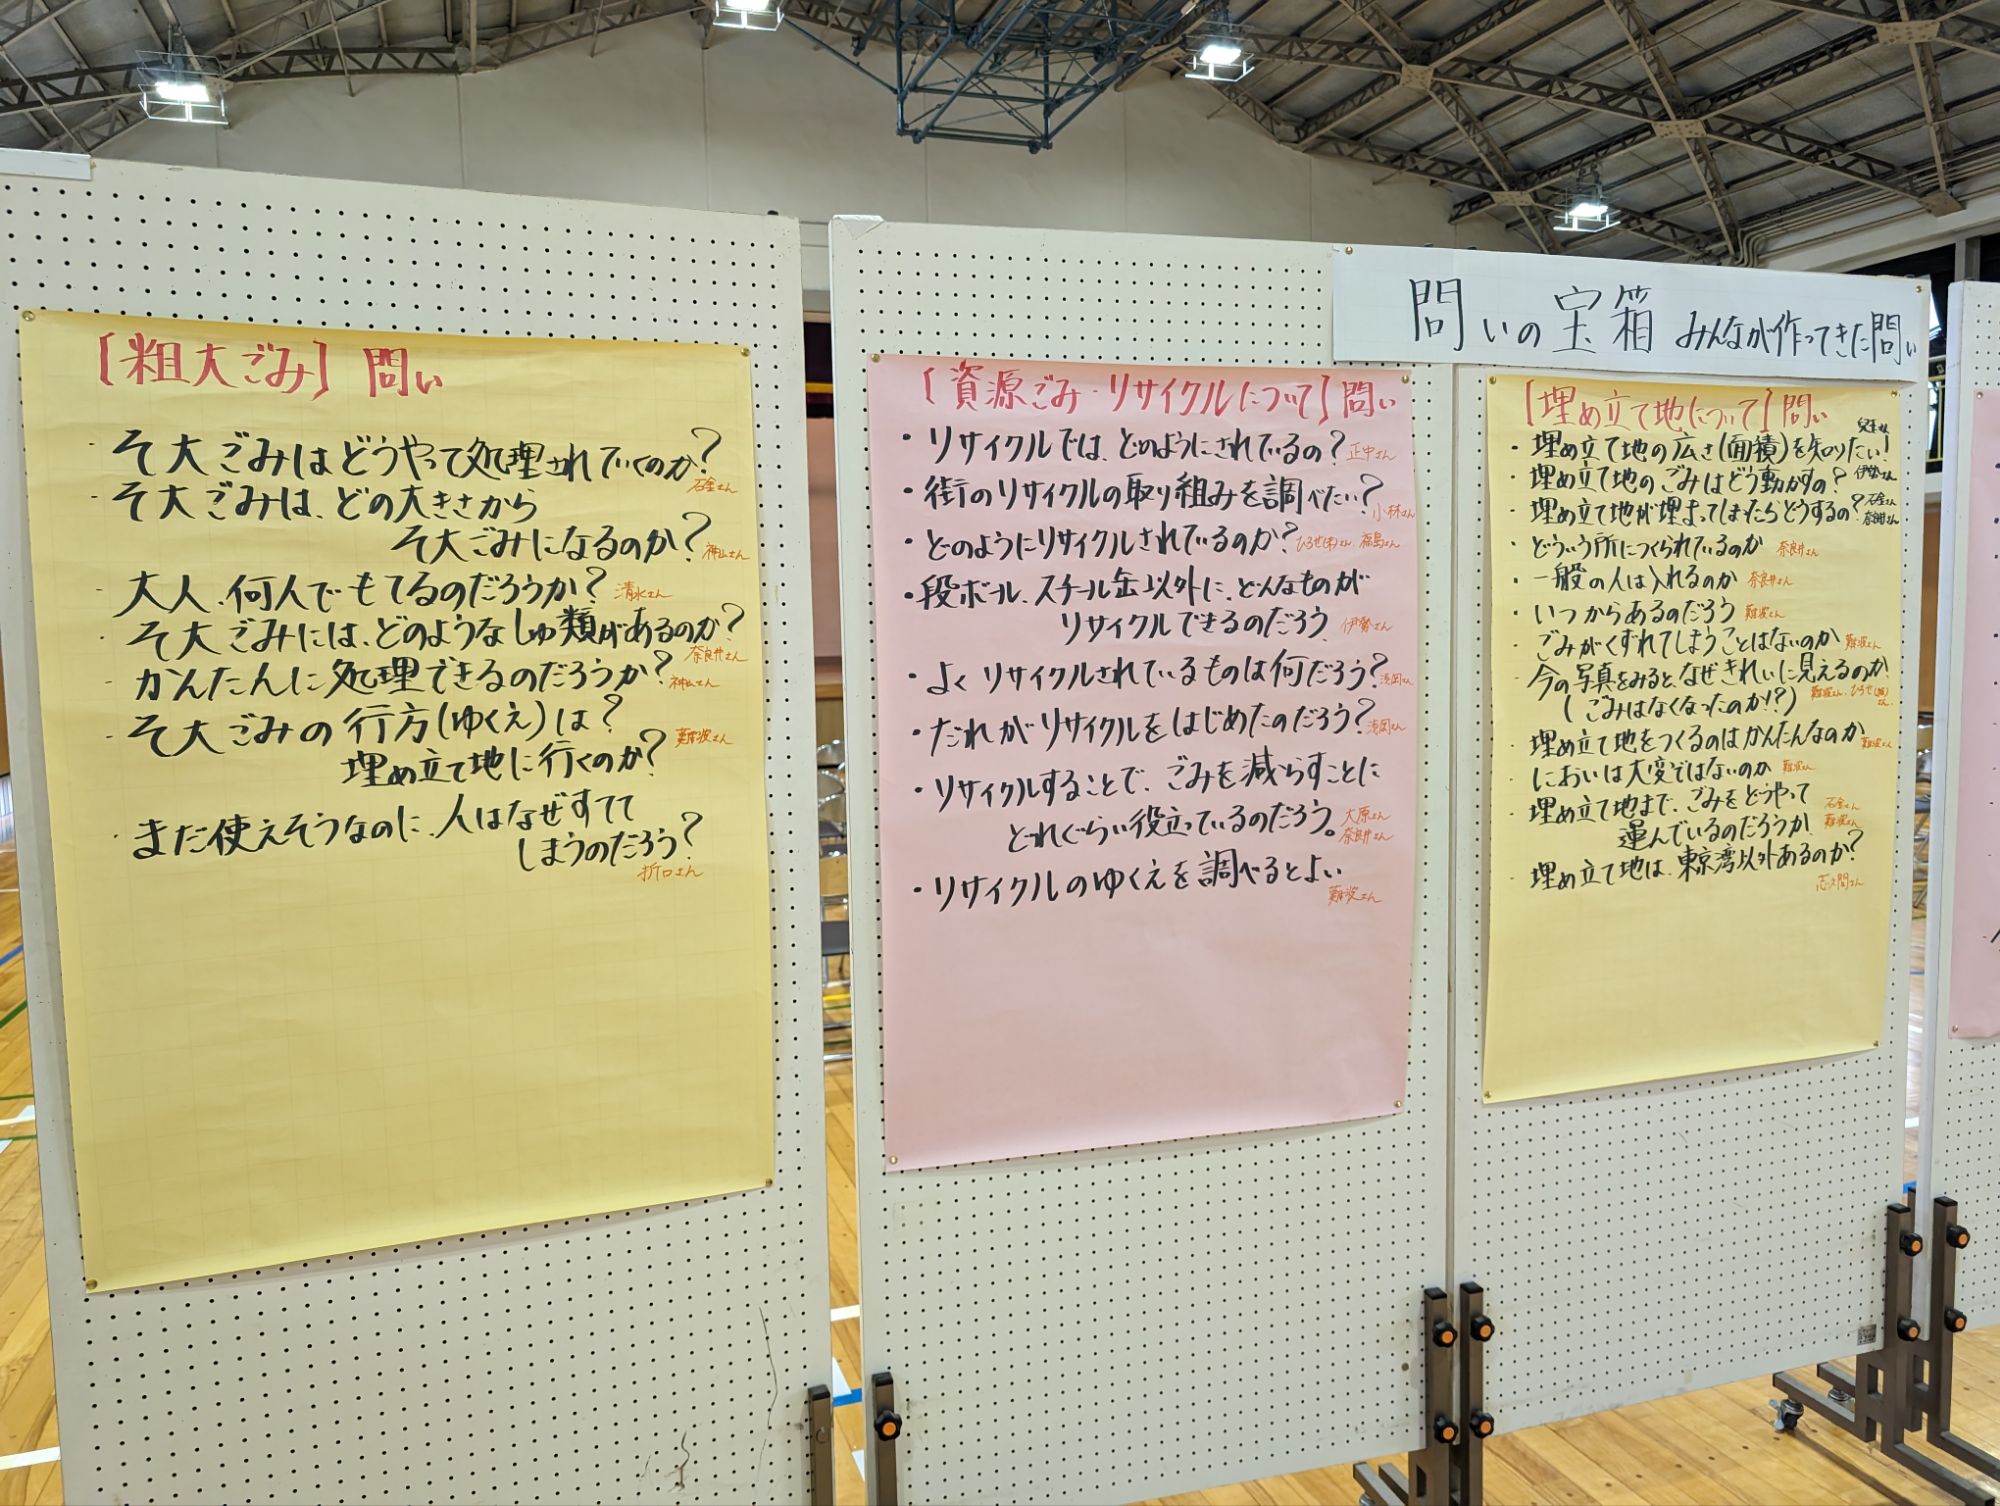 【粗大ごみ】問い
そ大ごみはどうやって処理されていくのか?
石金さん
そ大ごみは、どの大きさから
そ大ごみになるのか?
神山さん
大人、何人でもてるのだろうか?
清水さん
そ大ごみには、どのようなしゅ類があるのか?
奈良井さん
かんたんに処理できるのだろうか?
神山さん
そ大ごみの行方(ゆくえ)は?
難波さん
埋め立て地に行くのか?
・まだ使えそうなのに、人はなぜすてて
しまうのだろう?
折口さん
問いの宝箱 みんなが作ってきた問い
【資源ごみ・リサイクルについて】問い
・リサイクルでは、どのようにされているの?
正中さん
・街のリサイクルの取り組みを調べたい?
小林さん
・どのようにリサイクルされているのか?
福島さん
・段ボール、スチール缶以外に、どんなものが
リサイクルできるのだろう
伊勢さん
・よくリサイクルされているものは何だろう?
浅岡さん
・だれがリサイクルをはじめたのだろう?
浅岡さん
・リサイクルすることで、ごみを減らすことに
どれぐらい役立っているのだろう。
大原さん
奈良井さん
・リサイクルのゆくえを調べるとよい
難波さん
【埋め立て地について】問い
・埋め立て地の広さ(面積)を知りたい!
・埋め立て地のごみはどう動かすの?
伊勢さん
・埋め立て地が埋まってしまったらどうするの?
石金さん
・どういう所につくられているのか
奈良井さん
・一般の人は入れるのか
奈良井さん
・いつからあるのだろう
難波さん
・ごみがくずれてしまうことはないのか
難波さん
・今の写真をみると、なぜきれいに見えるのか
(ごみはなくなったのか!?)
難波さん
・埋め立て地をつくるのはかんたんなのか
難波さん
・においは大変ではないのか
難波さん
・埋め立て地まで、ごみをどうやって
運んでいるのだろうか
石金さん
難波さん
・埋め立て地は、東京湾以外あるのか?
志久間さん